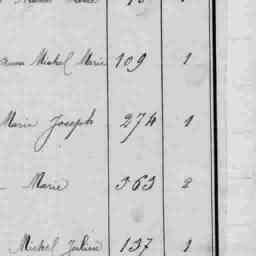 Michel Marie 109 1
Marie Joseph 274 1
Marie 363 2
Michel Julien 137 1